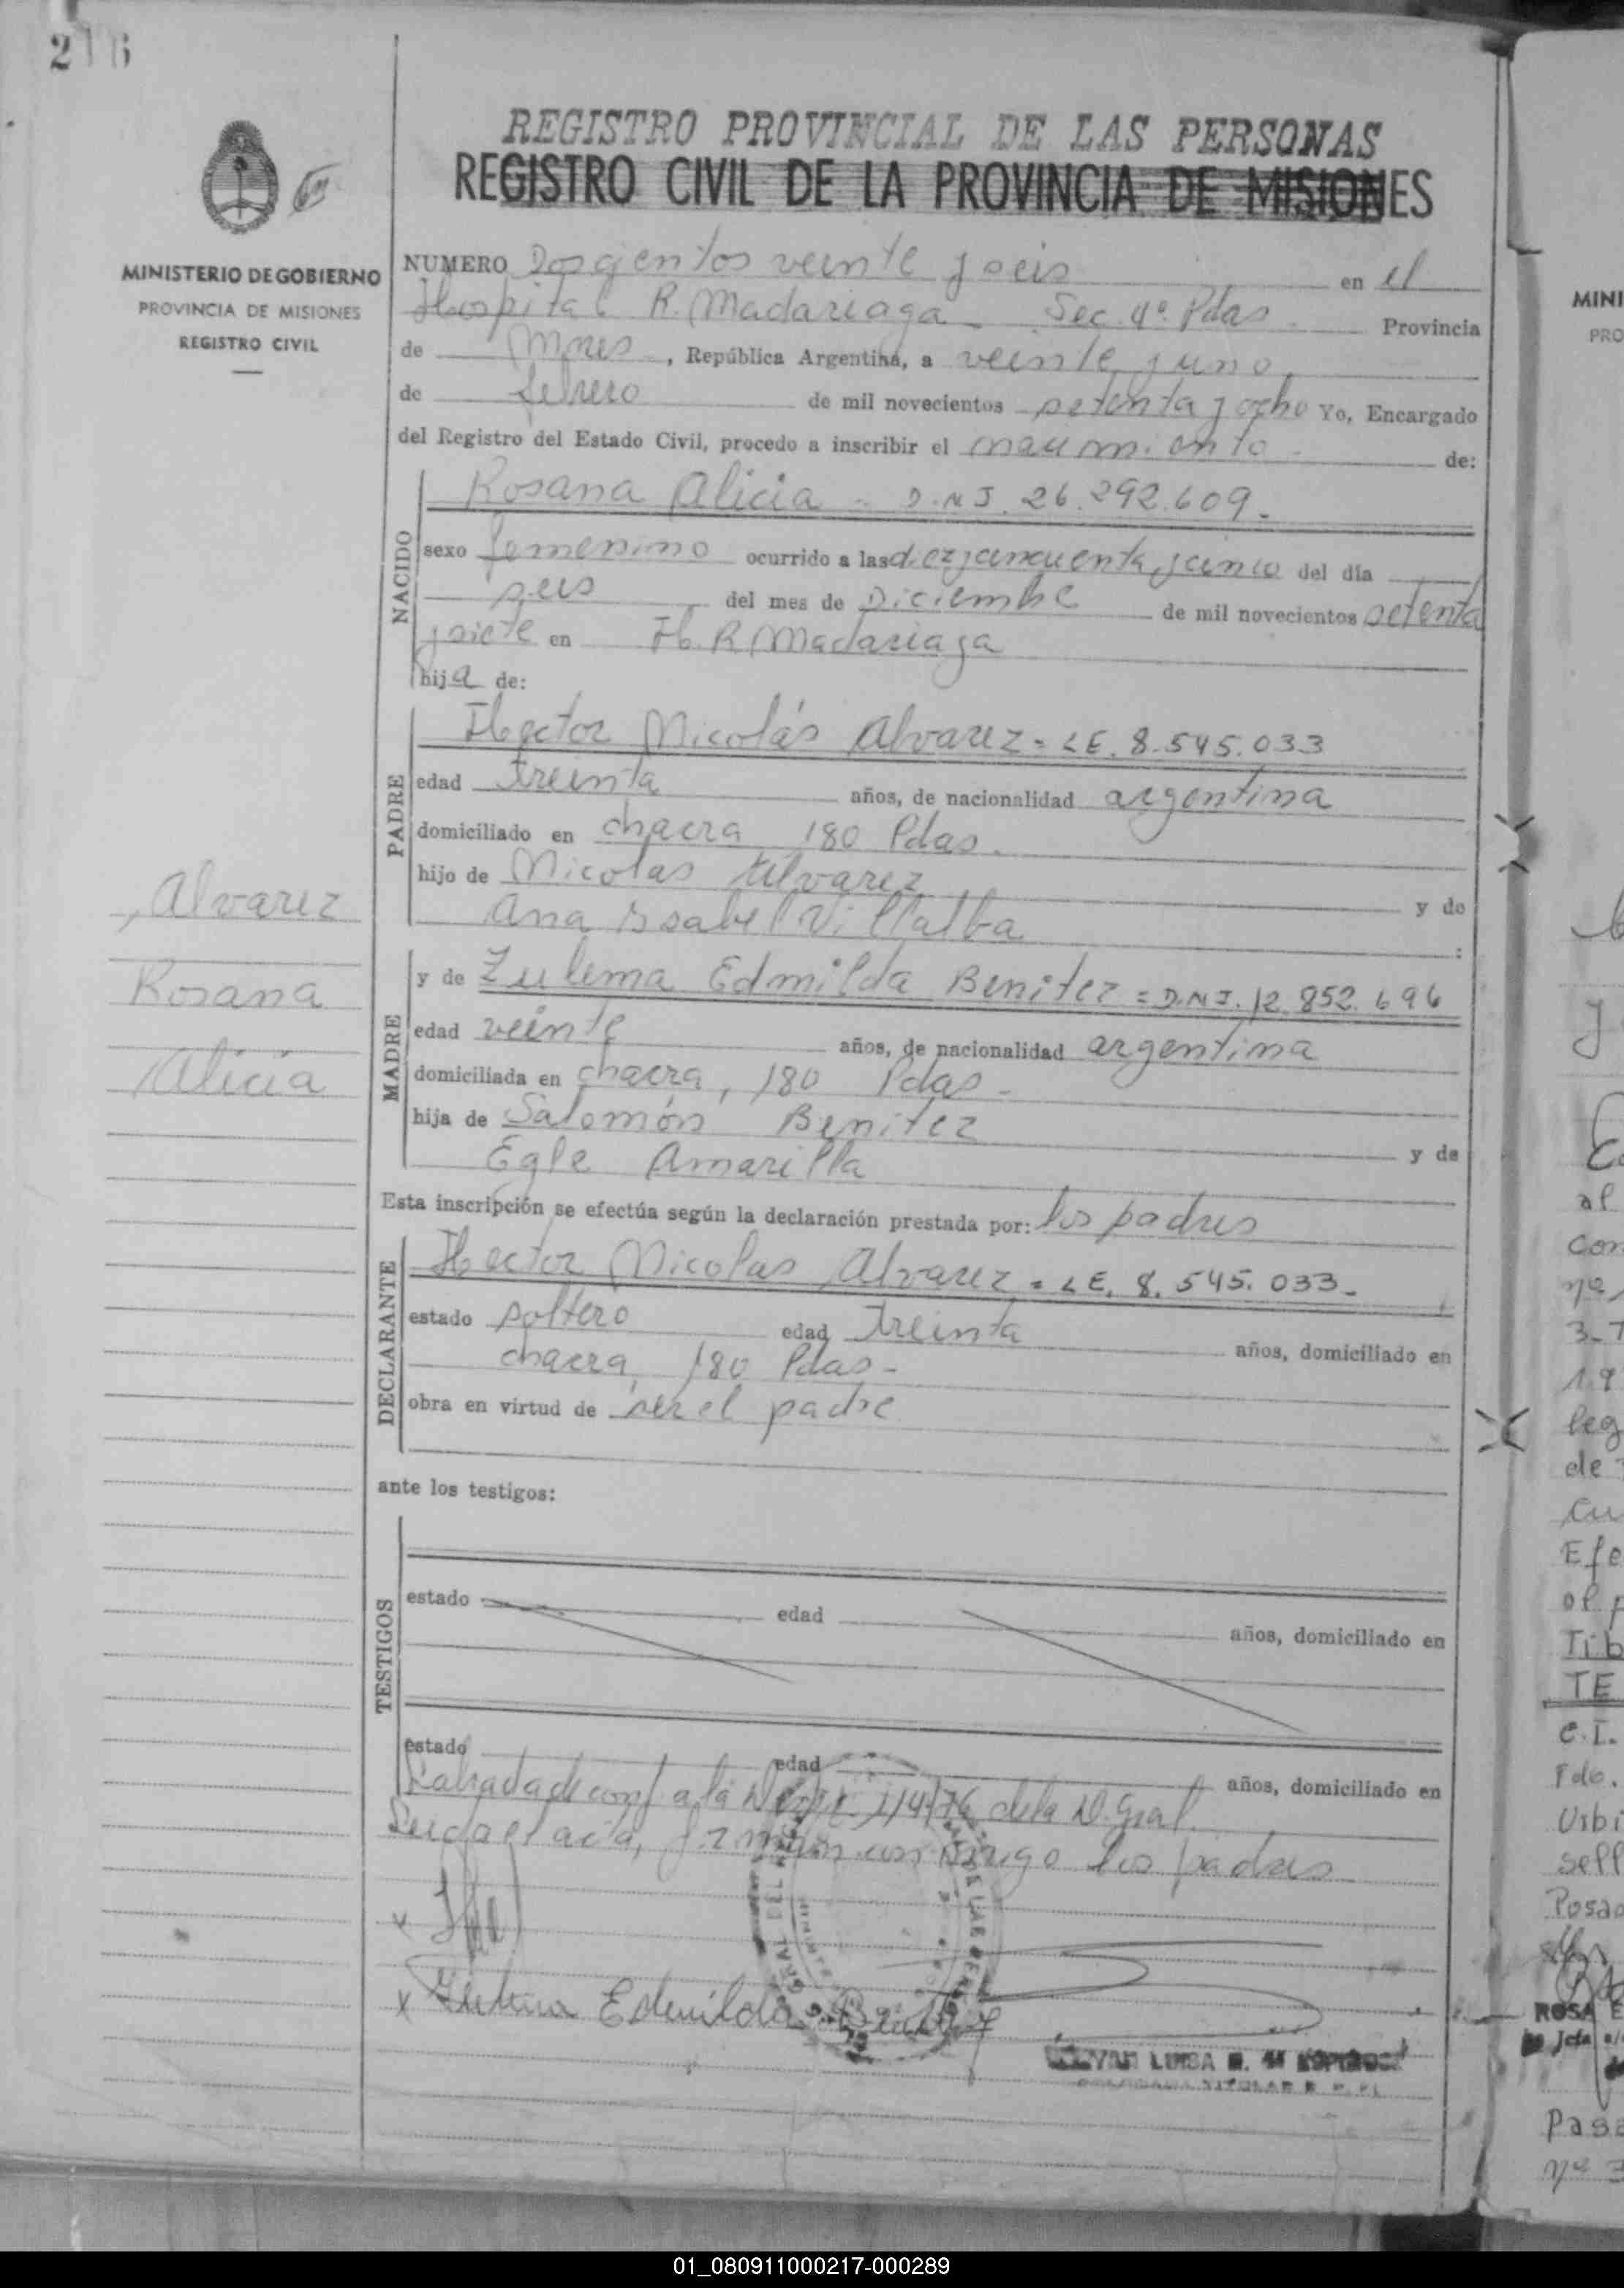 216
REGISTRO PROVINCIAL DE LAS PERSONAS
REGISTRO CIVIL DE LA PROVINCIA DE MISIONES
MINISTERIO DE GOBIERNO
PROVINCIA DE MISIONES
REGISTRO CIVIL
NUMERO Doscientos veinte y seis en el
Hospital R. Madariaga - Sec. 4ª Pdas. Provincia
de Mnes, República Argentina, a veinte y uno
de febrero de mil novecientos setenta y ocho Yo, Encargado
del Registro del Estado Civil, procedo a inscribir el nacimiento de:
NACIDO
Rosana Alicia - D.N.I. 26.292.609.-
sexo femenino ocurrido a las diez y cincuenta y cinco del día
seis del mes de Diciembre de mil novecientos setenta
y siete en H. R. Madariaga
hija de:
PADRE
Hector Nicolás Alvarez = LE. 8.545.033
edad treinta años, de nacionalidad argentina
domiciliado en chacra 180 Pdas.
hijo de Nicolas Alvarez y de
Ana Ysabel Villalba :
Alvarez
Rosana
Alicia
MADRE
y de Zulema Edmilda Benitez = D.N.I. 12.852.696
edad veinte años, de nacionalidad argentina
domiciliada en chacra, 180 Pdas -
hija de Salomón Benitez y de
Egle Amarilla
Esta inscripción se efectúa según la declaración prestada por: los padres
DECLARANTE
Hector Nicolas Alvarez = LE. 8.545.033.-
estado soltero edad treinta años, domiciliado en
chacra, 180 Pdas -
obra en virtud de ser el padre
ante los testigos:
TESTIGOS
estado edad años, domiciliado en
estado edad años, domiciliado en
Labrada de conf. a la 114/76 de la D. Gral.
Leida el acta, firman conmigo los padres
x
x Zulema Edmilda Benitez
LUISA
MINI
PRO
al
con
3-T
leg
de
Efe
Tib
TE
C.I.
Fdo.
Urbi
sell
Posad
ROSA E
Jefa
Pasa
01_080911000217-000289